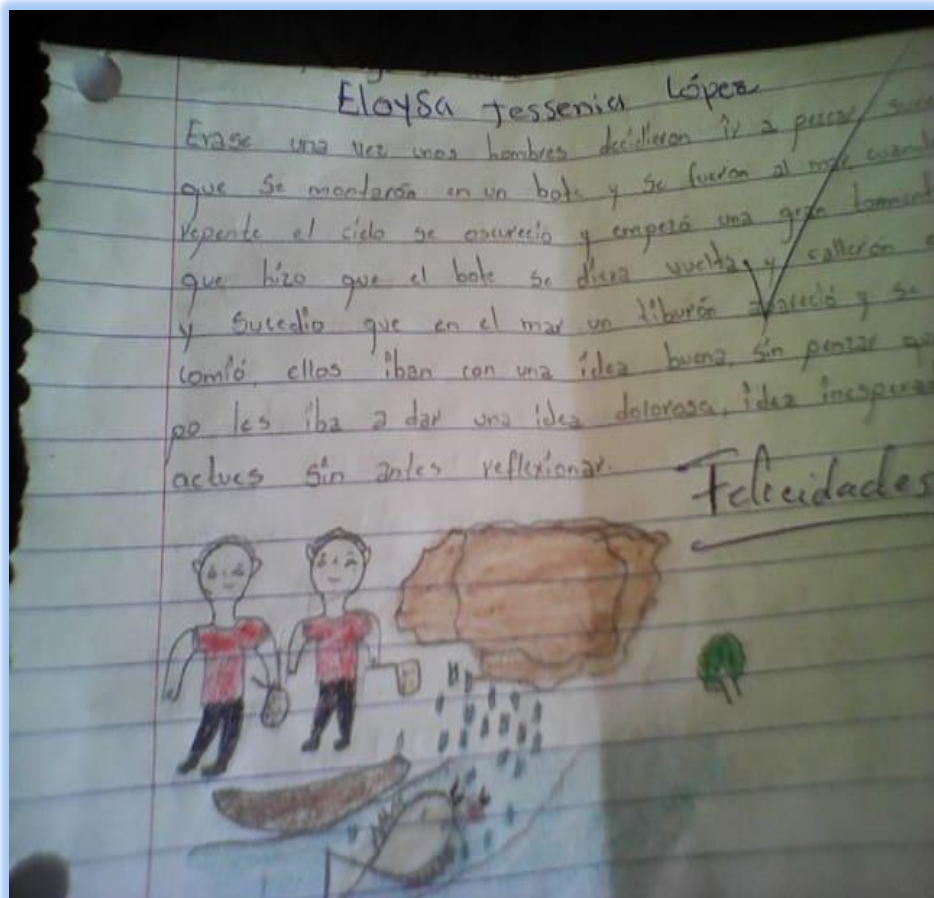 Eloysa Jessenia López
Erase una vez unos hombres decidieron ir a pescar
que se montarón en un bote y se fuerón al mar
repente el cielo se oscurecio y empezó una gran
que hizo que el bote se diera vuelta y callerón
y sucedio que en el mar un tiburón apareció y se
comió, ellos iban con una idea buena, sin penzar
po les iba a dar una idea dolorosa, idea
actues sin antes reflexionar.
Felicidades